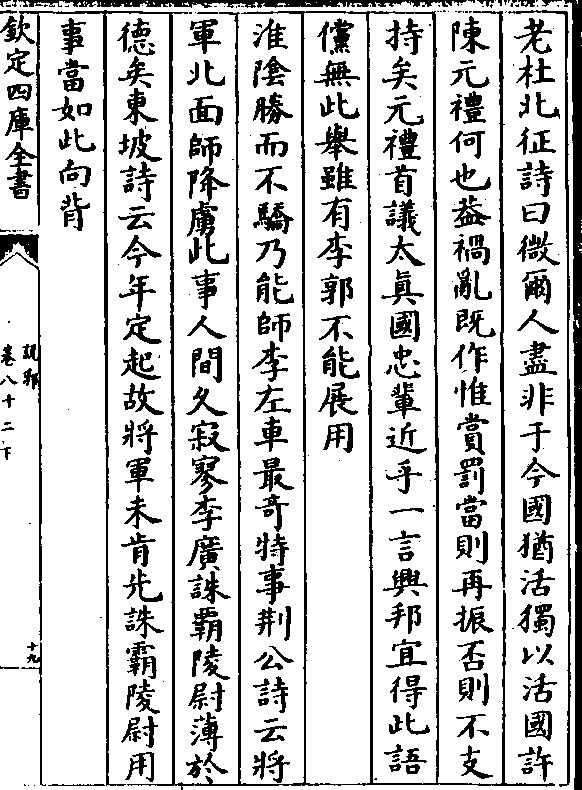 老杜北征詩曰微爾人盡非于今國猶活獨以活國許
陳元禮何也葢禍亂既作惟賞罰當則再振否則不支
持矣元禮首議太真國忠輩近乎一言興邦宜得此語
儻無此舉雖有李郭不能展用
淮隂勝而不驕乃能師李左車最奇特事荆公詩云將
軍北面師降虜此事人間久寂寥李廣誅霸陵尉薄於
德矣東坡詩云今年定起故將軍未肯先誅霸陵尉用
事當如此向背
欽定四庫全書
說郛
卷八十二下
十九